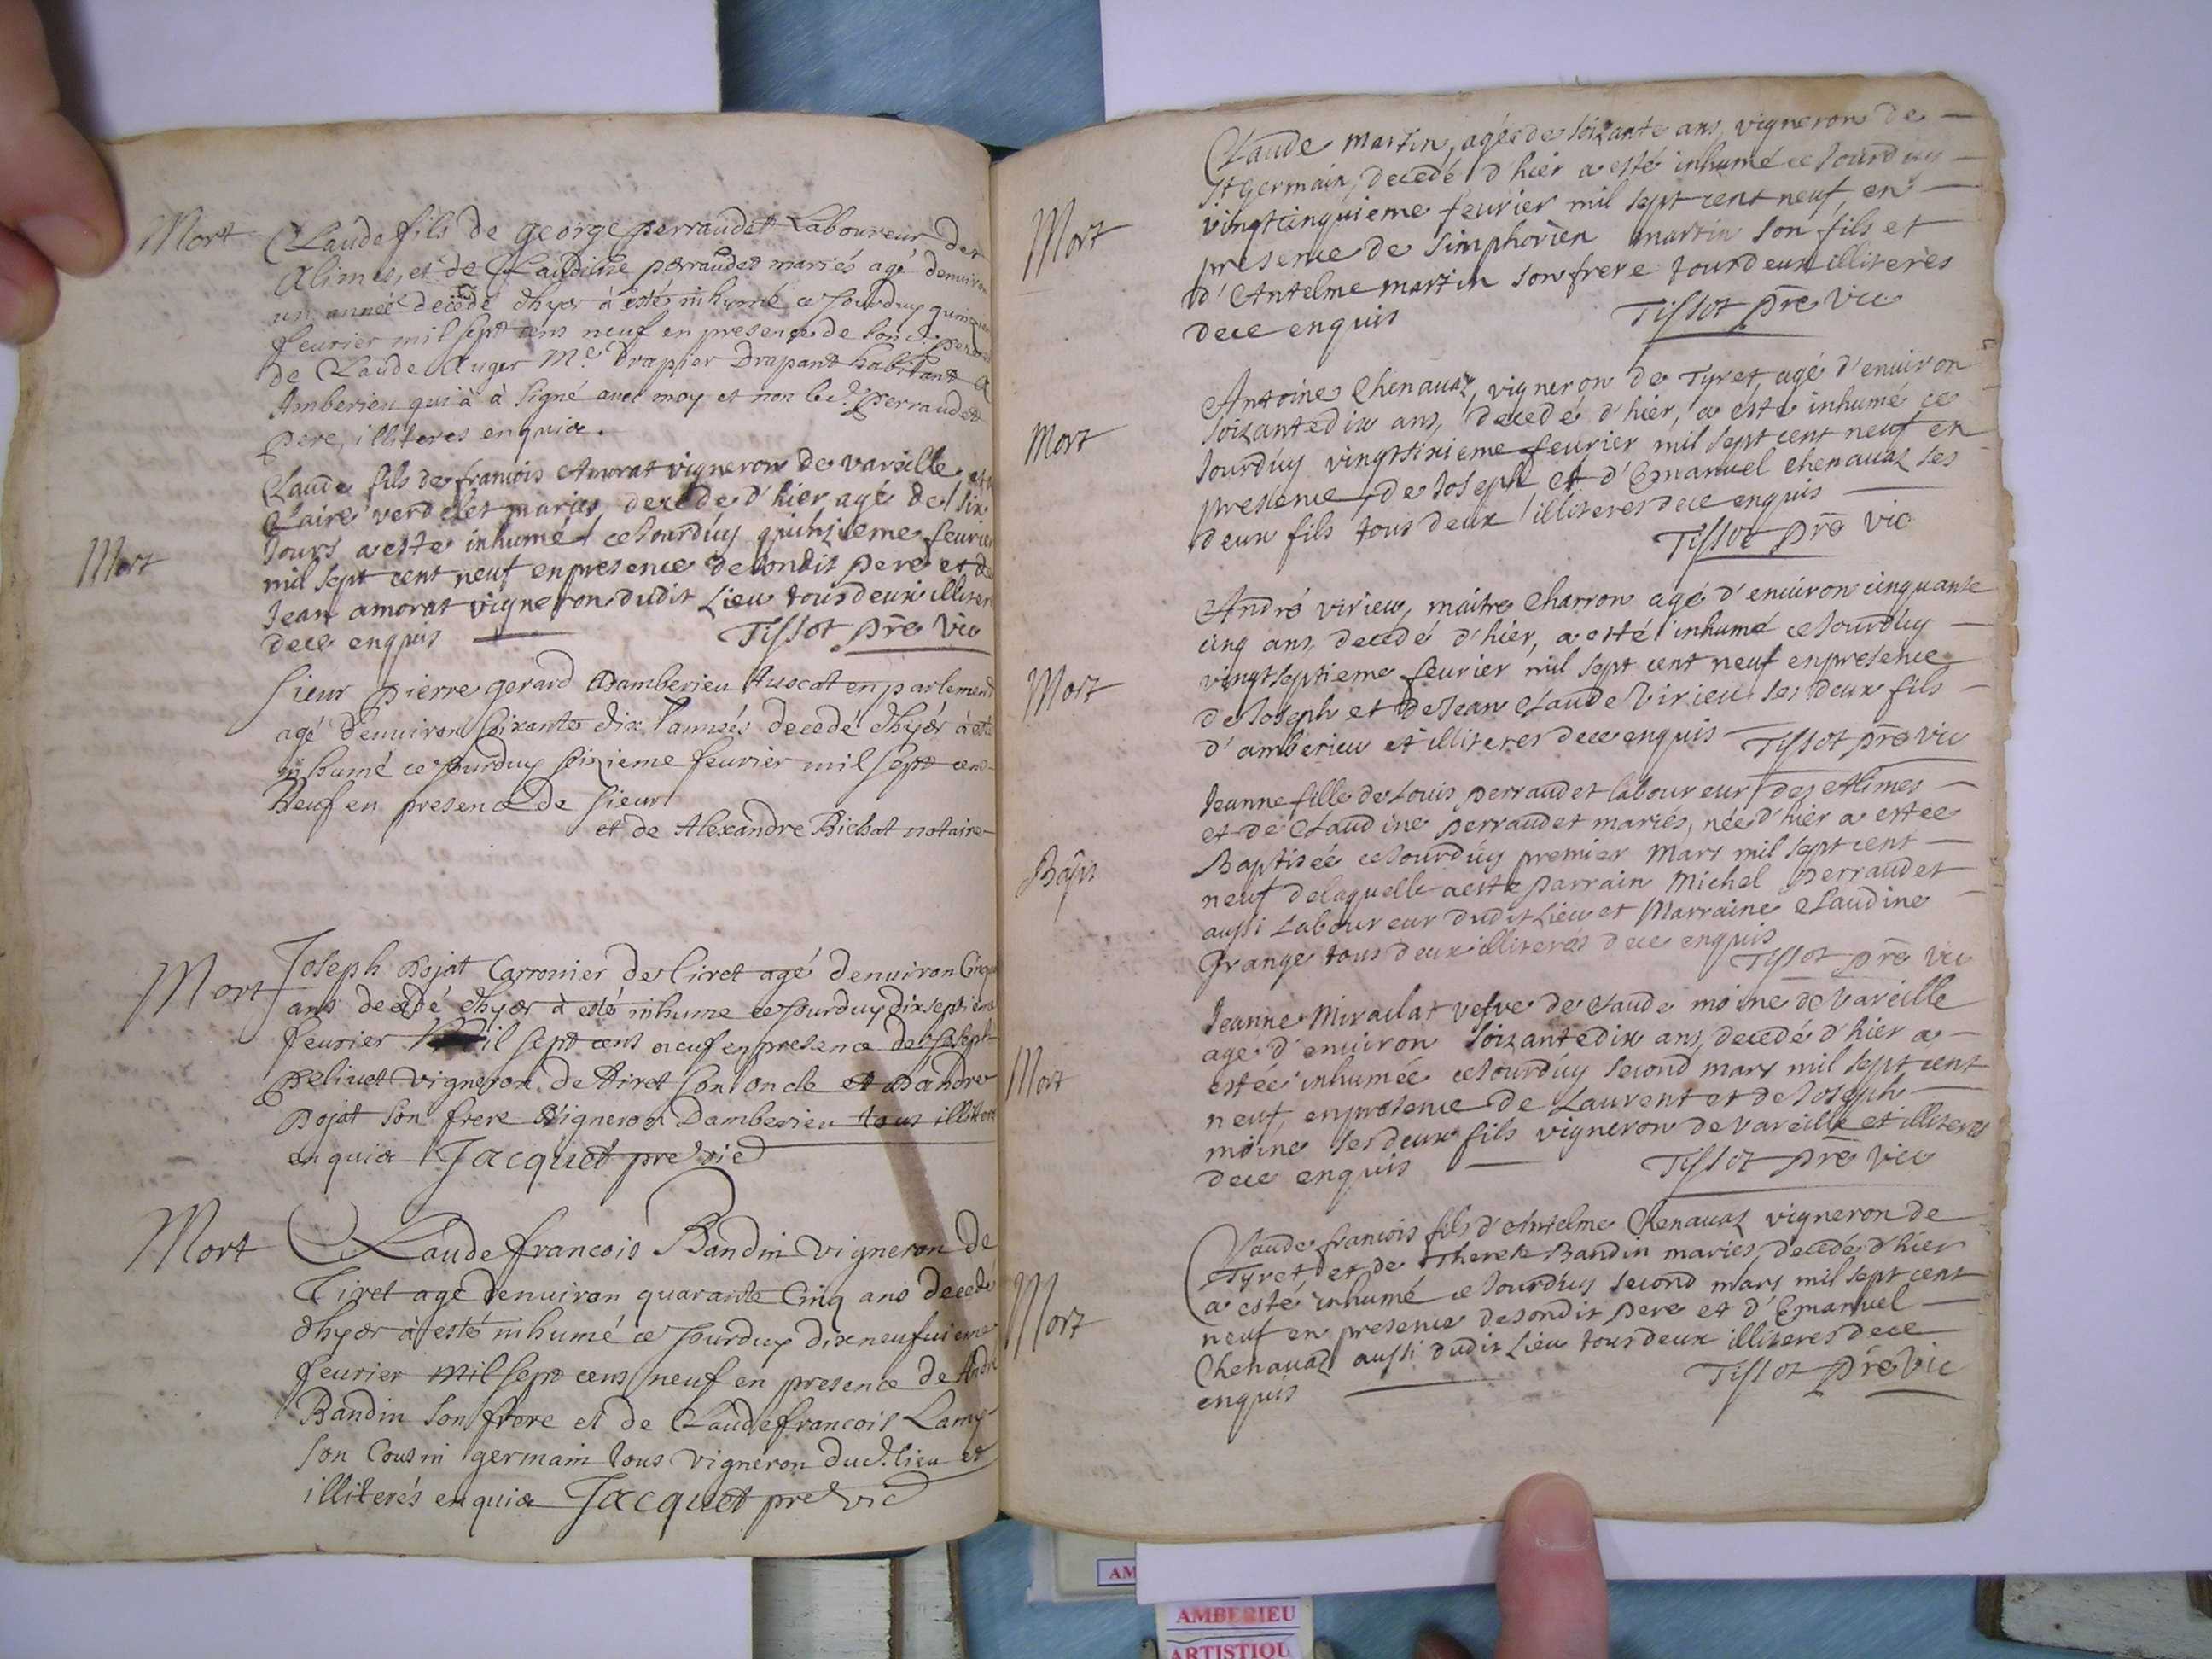 Mort
Claude fils de george perraudet Laboureur des
Alimes, et de Claudine perraudet mariés agé denviron
un année decedé dhyer à esté inhumé ce jourduy
feurier mil sept cens neuf en presence de son d. pere
de Claude Auger Me. Drapier Drapant habitant a
Amberieu qui à à signé avec moy et non led. perraudet
pere, illiteres enquis.
Mort
Claude fils de francois Amorat vigneron de vareille et
Claire verdelet maries, decede d'hier agé de six
Jours a este inhumé ce Jourdúy quinzieme feurier
mil sept cent neuf en presence de sondit pere et de
Jean amorat vigneron dudit Lieu tous deux illiteres
dece enquis
Tissot pre vic
Sieur pierre gerard Damberieu Auocat en parlement
agé denviron soixante dix années decedé dhyer à esté
inhumé ce jourduy seizieme feurier mil sept cens
Neuf en presence de sieur
et de Alexandre Bichat notaire
Mort
Joseph Dojat Carronier de Tiret agé denviron Cinq
ans decedé dhyer à esté inhume ce jourduy dixseptieme
feurier Mil sept cens neuf en presence de Joseph
Pelivet vigneron de Tiret son oncle et Dandre
Dojat son frere Vigneron Damberieu tous illiteres
enquis Jacquet pre vic
Mort
Claude francois Bandin vigneron de
Tiret agé denviron quarante Cinq ans decedé
dhyer à esté inhumé ce jourduy dixneufuieme
feurier mil sept cens neuf en presence de André
Bandin son frere et de Claude francois Lamy
son Cousin germain tous vigneron dud. lieu et
illiterés enquis Jacquet pre vic
Mort
Claude martin, agée de soizante ans, vigneron de
st Germain, decedé d'hier a esté inhumé ce Jourdúy
vingtcinquieme feurier mil sept cent neuf, en
presence de Simphorien martin son fils et
d'Antelme martin son frere tourdeux illiterès
dece enquis
Tissot pre vic
Mort
Antoine Chenauaz, vigneron de Tyret, agé d'enuiron
soizantedix ans, decedé d'hier, a esté inhumé ce
Jourdúy vingtsixieme feurier mil sept cent neuf en
presence de Joseph et d'Emanuel chenauaz ses
deux fils tous deux illiteres dece enquis
Tissot pre vic
Mort
André virieu, maitre Charron agé d'enuiron cinquante
cinq ans, decédé d'hier, a esté inhumé ce Jourdúy
vingtseptieme feurier mil sept cent neuf en presence
de Joseph et de Jean Claude Virieu ses deux fils
d'amberieu et illiteres dece enquis
Tissot pre vic
Bapt
Jeanne fille de Louis perraudet laboureur des Alimes
et de Claudine perraudet mariés, née d'hier a estee
Baptisée ce Jourdúy premier Mars mil sept cent
neuf de laquelle a este parrain Michel perraudet
aussi Laboureur dudit Lieu et Marraine Claudine
Grange tous deux illiterés dece enquis
Tissot pre vic
Mort
Jeanne Miraclat vefve de Claude moine de Vareille
age d'enuiron soizantedix ans, decedé d'hier a
estée inhumée ce Jourdúy second mars mil sept cent
neuf, en presence de Laurent et de Joseph
moine ses deux fils vigneron de Vareille et illiteres
dece enquis
Tissot pre vic
Mort
Claude francois fils d'Antelme Chenauaz vigneron de
Tyret et de Therese Bandin mariés, decedé d'hier
a esté inhumé ce Jourdúy second mars mil sept cent
neuf en presence de sondit pere et d'Emanuel
Chenauaz aussi dudit Lieu tous deux illiteres dece
enquis
Tissot pre vic
AM
AMBERIEU
ARTISTIQU